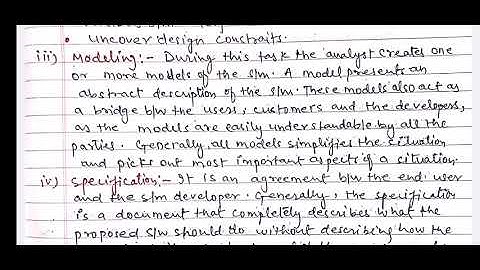 • Uncover design constraits.
iii) Modeling:- During this task the analyst creates one
or more models of the s/m. A model presents an
abstract description of the s/m. These models also act as
a bridge b/w the users, customers and the developers,
as the models are easily understandable by all the
parties. Generally all models simplifies the situation
and picks out most important aspects of a situation.
iv) Specification:- It is an agreement b/w the end user
and the s/m developer. Generally, the specification
is a document that completely describes what the
proposed s/w should do without describing how the